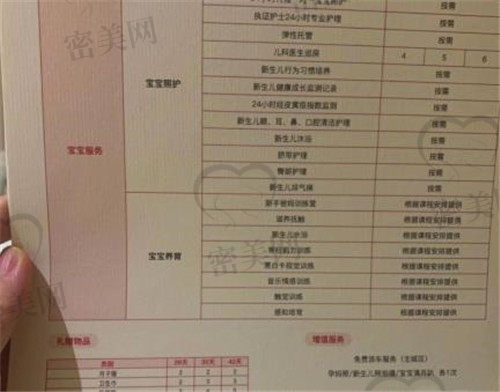 执证护士24小时专业护理 按需
弹性托管 按需
儿科医生巡房 4 5 6
新生儿行为习惯培养 按需
宝宝照护 新生儿健康成长监测记录 按需
24小时经皮黄疸指数监测 按需
新生儿眼、耳、鼻、口腔清洁护理 按需
新生儿沐浴 按需
宝宝服务 脐带护理 按需
臀部护理 按需
新生儿排气操 按需
新手爸妈训练营 根据课程安排提供
滋养抚触 根据课程安排提供
新生儿水浴 根据课程安排提供
宝宝养育 根据课程安排提供
黑白卡视觉训练 根据课程安排提供
音乐情感训练 根据课程安排提供
触觉训练 根据课程安排提供
感知培育 根据课程安排提供
礼赠物品 增值服务
类别 28天 35天 42天 免费派车服务（主城区）
月子服 2 2 3 孕妈照/新生儿照拍摄/宝宝满月趴 各1次
卫生巾
密美网
密美网
密美网